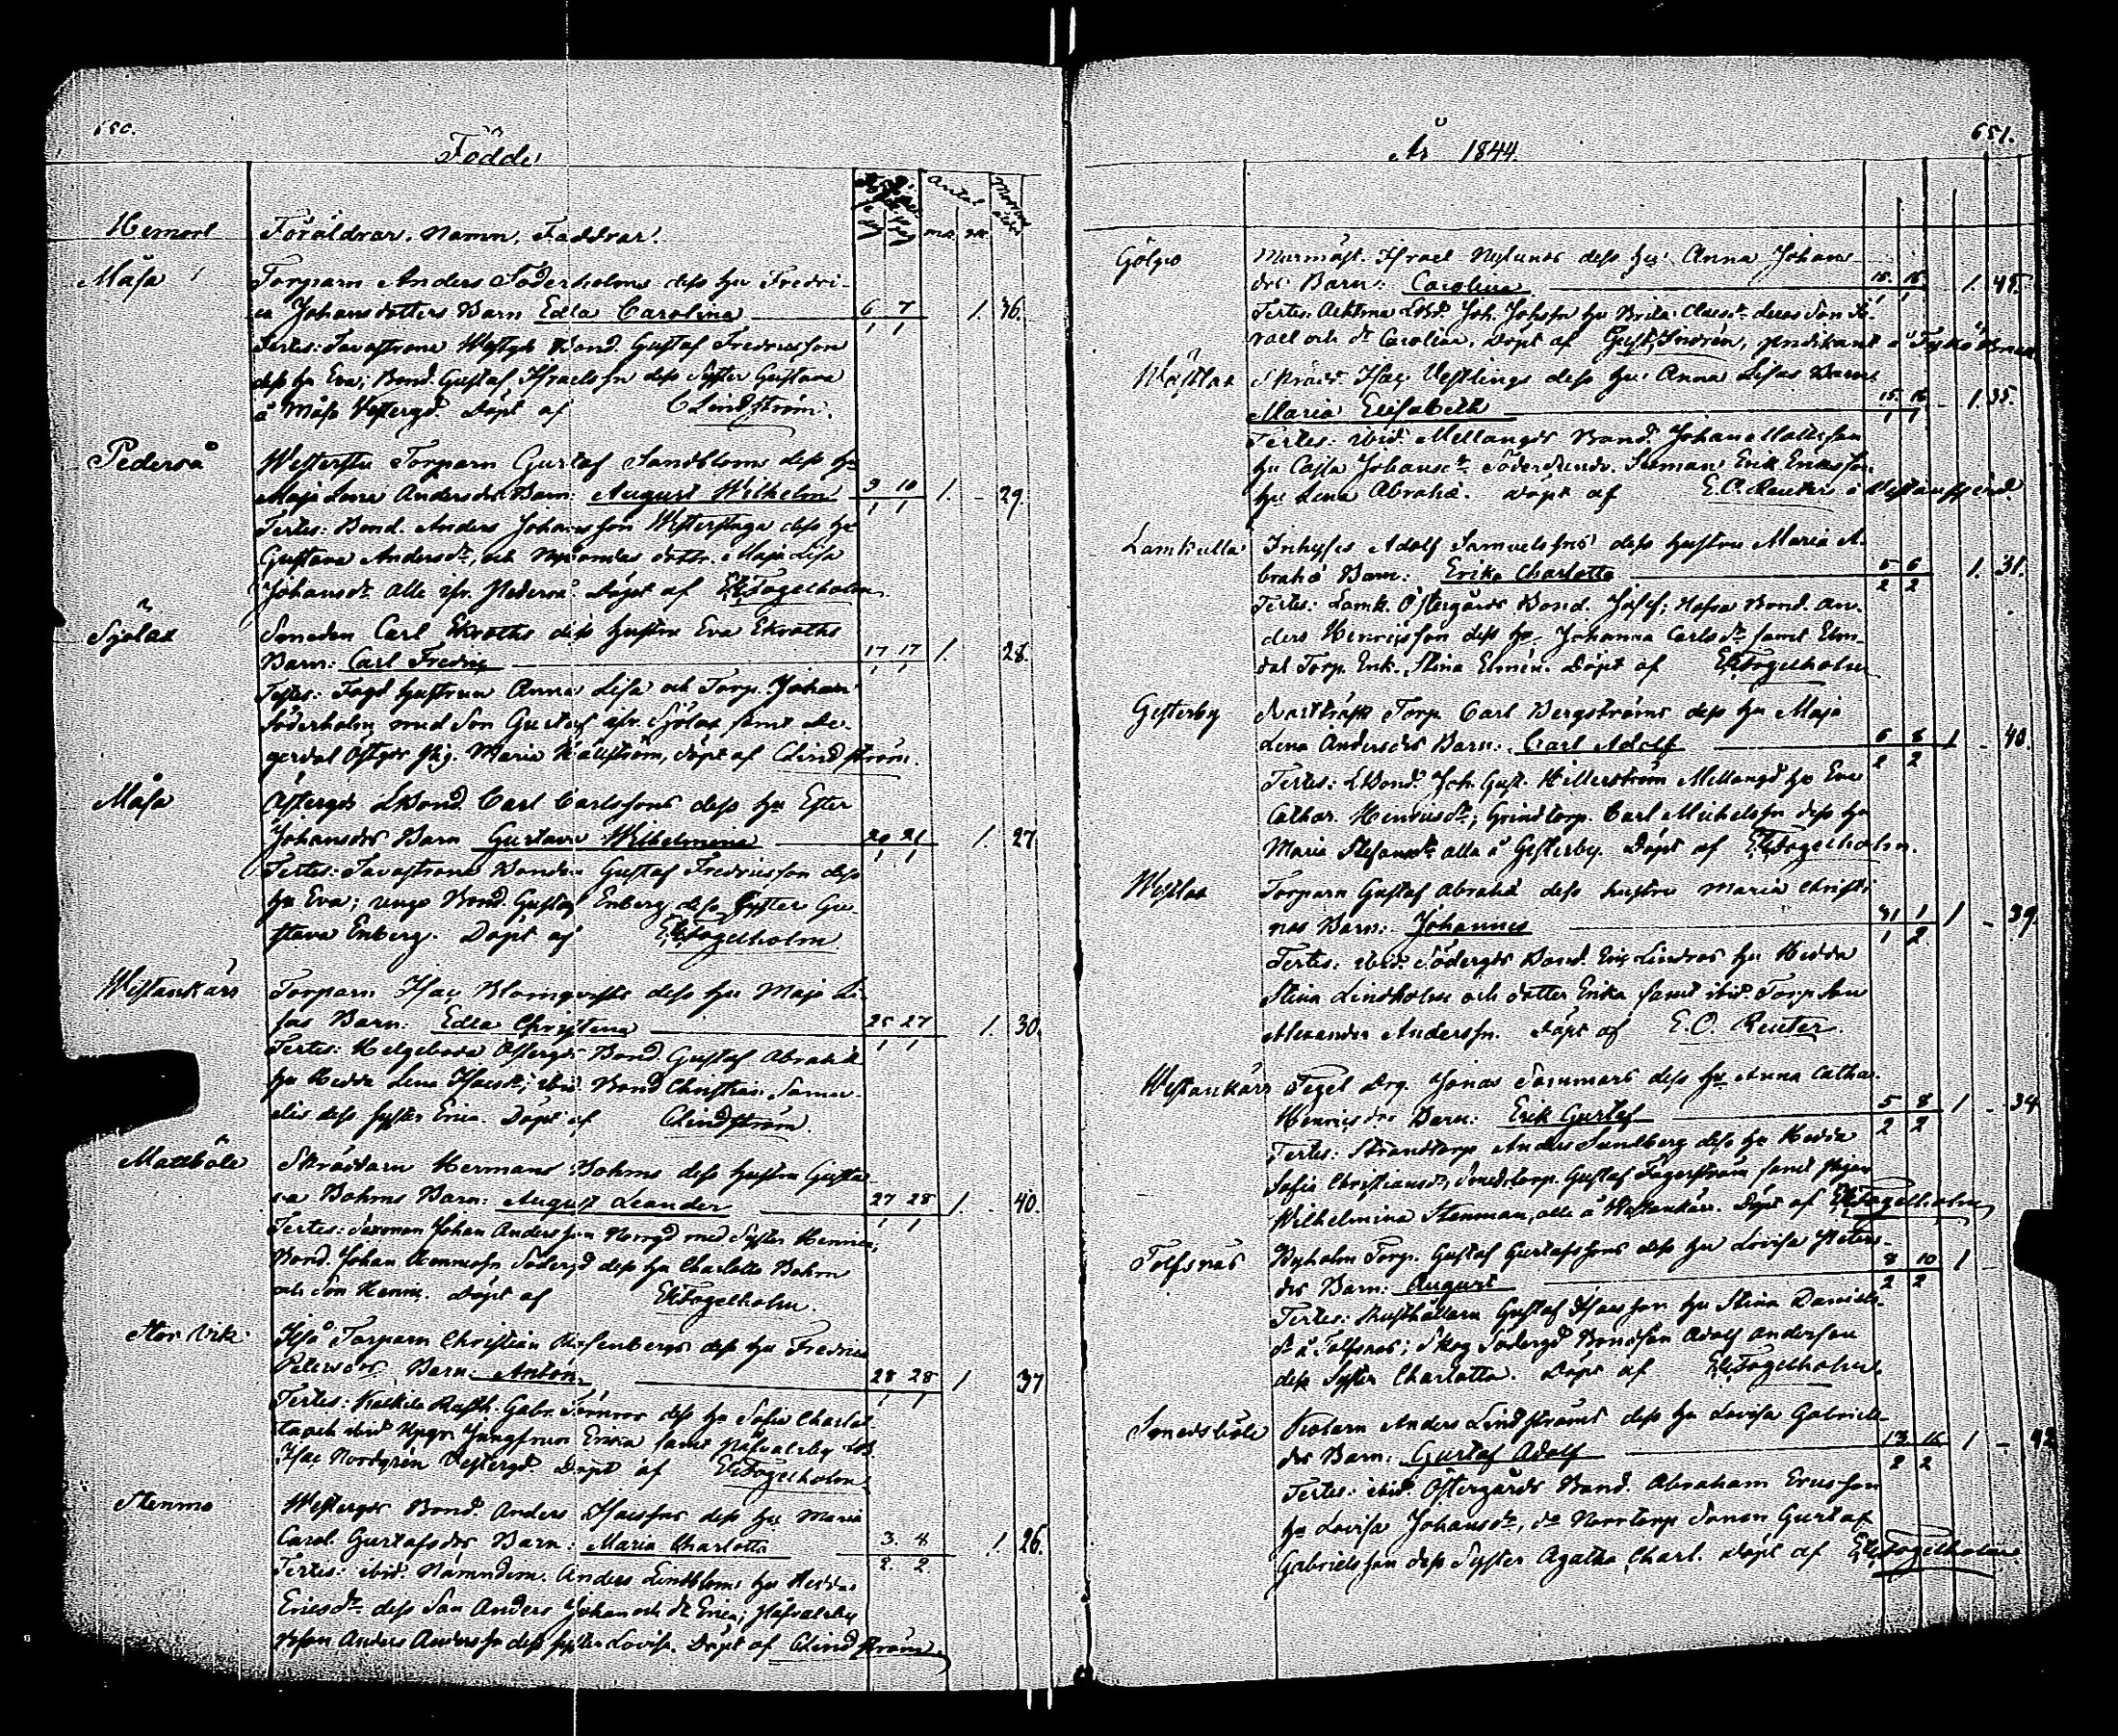 650.
Födde
Hemort
Föräldrar. Namn. Faddrar.
Antal
mk. qk.
Måsa
Torparn Anders Söderholms dess hu Fredri-
ca Johansdotters Barn Edla Carolina 6/1 7/1 1. 36.
Testes: Tavastrone Westgds Bond. Gustaf Fredricsson
dess hu Eva; Bond. Gustaf Israelssn dess Syster Gustava
å Måsa Vestergd. Döpt af CLindström.
Pederså
Torparn Gustaf Sandbloms dess hu
Maja Lena Andersdrs Barn: August Wilhelm 9/1 10/1 1. - 29.
Testes: Bond. Anders Johansson dess hu
Gustava Andersdr, och dottr. Maja Lisa
Johansdr alla ifr. Pederså. Döpt af EETogelholm.
Sjölax
Smeden Carl Ekroths dess hustru Eva Ekroths
Barn: Carl Fredric 17/1 17/1 1. 28.
Testes: Fogd hustrun Anna Lisa och Torp. Johan
Söderholm med Son Gustaf ifr. Sjölax samt De-
gerdal Östgds Pig. Maria Källström, döpt af CLindström.
Måsa
Östergds LBond. Carl Carlssons dess hu Ester
Johansdrs Barn Gustava Wilhelmina 20/1 21/1 1. 27
Testes: Tavastrone Bonden Gustaf Fredricsson dess
hu Eva; unga Bond. Gustaf Enberg dess Syster Gu-
stava Enberg. Döpt af EETogelholm
Westankärr
Torparn Isac Blomqvists dess hu Maja Li-
sas Barn: Edla Christina 25/1 27/1 1. 30.
Testes: Helgeboda Östergds Bond. Gustaf Abrahä
hu Hedda Lena Isacsdr; ibid. Bond Christian Samu-
elis dess syster Erica. Döpt af CLindström.
Mattböle
Skräddarn Hermans Bohms dess hustru Gusta-
va Bohms Barn: August Leander 27/1 28/1 1. - 40.
Testes: Johan Andersson Norrgd med Syster Henrica;
Bond. Johan Södergd dess hu Charlotta Bohm
och Son Henric. Döpt af EETogelholm.
Stor Wik
Torparn Christian dess hu Fredrica
Petersdrs Barn: Anton 28/1 28/1 1. 37
Testes: Gabr. dess hu Sofia Charlot-
ta och ibid. Jungfrun Erica samt LB.
Isac Nordgrén Vestergd. Döpt af EETogelholm
Stenmo
Westergds Bond. Anders Isacssns dess hu Maria
Carol. Gustafsdrs Barn: Maria Charlotta 3/2. 4/2. 1. 26.
Testes: ibid. Nämndem. Anders Lindblom hu Hedda
Ericsdr dess Son Anders Johan och dr Erica;
Anders Anderssn dess syster Lovisa. Döpt af CLindström
År 1844.
651.
Gölpo
Murmäst. Israel Nylunds dess hu Anna Johans
drs Barn: Carolina 15/1 16/1 1. 45.
Testes. LBd. Joh. Johssn hu Brita Claesdr deras Son Is-
rael och dr Carolina. Döpt af Gust. , prädikant i Tykö Bruk
Westlax
Skrädd. Isac Vestlings dess hu Anna Lisas Barn
Maria Elisabeth 15/1 16/1 - 1. 35.
Testes: ibid. Mellangds Bond. Johan Mattsson
hu Cajsa Johansdr. Söders. Erik Eriksson
hu Lena Abrahä. Döpt af E.O. Reuter i Vestanfjerd.
Lamkulla
Inhyses Adolf Samuelssns dess hustru Maria A-
brahä Barn: Erika Charlotta 5/2 6/2 1. 31.
Testes: Lamk. Östergårds Bond. Josef; Bond. An-
ders Henricsson dess hu Johanna Carlsdr samt Elm-
dal Torp. Enk. Stina Elmén. Döpt af EETogelholm
Gesterby
Torp. Carl Bergströms dess hu Maja
Lena Andersdrs Barn: Carl Adolf 6/2 8/2 1 - 40.
Testes: LBond. Joh. Gust. Hillerström Mellangd hu Eva
Cathar. Henricsdr; Grindtorp. Carl Michelssn dess hu
Maria Stefansdr alla å Gesterby. Döpt af EETogelholm.
Westlax
Torparn Gustaf Abrahä dess hustru Maria Christi-
nas Barn: Johannes 31/1 1/2 1 - 39.
Testes: ibid. Södergds Bond. Eric Lindros hu Hedda
Stina Lindholm och dotter Erika samt ibid. Torp. Son
Alexander Anderssn. Döpt af E.O. Reuter.
Westankärr
Tegel Drg. Jonas Sommars dess hu Anna Catha.
Henricsdrs Barn: Erik Gustaf 5/2 8/2 1 - 34
Testes: Strandtorp. Anders Sundberg dess hu Hedda
Sofia Christiansdr, Gustaf Fagerström samt Pigan
Wilhelmina Stenman, alla å Westankärr. Döpt af EETogelholm
Tolfsnäs
Byholm Torp. Gustaf Gustafssons dess hu Lovisa Peters-
drs Barn: August 8/2 10/2 1
Testes: Rusthållarn Gustaf Isacsson hu Stina Daniels-
dr å Tolfsnäs; Skog Södergd Bondson Adolf Andersson
dess Syster Charlotta. Döpt af EETogelholm.
Smedsböle
Anders Lindströms dess hu Lovisa Gabriels-
drs Barn: Gustaf Adolf 13/2 16/2 1 - 42
Testes: ibid. Östergårds Bond. Abraham Ericsson
hu Lovisa Johansdr, do Norrtorp Sonen Gustaf
Gabrielsson dess Syster Agatha Charl. Döpt af EETogelholm.